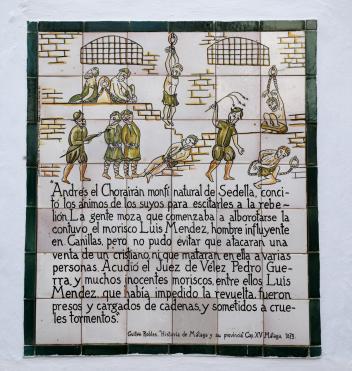 "Andrés el Chorairán monfí natural de Sedella, conci-
tó los ánimos de los suyos para escitarles a la rebe-
lión. La gente moza que comenzaba a alborotarse la
contuvo el morisco Luis Mendez, hombre influyente
en Canillas, pero no pudo evitar que atacaran una
venta de un cristiano, ni que mataran en ella a varias
personas. Acudió el Juez de Velez Pedro Gue-
rra, y muchos inocentes moriscos, entre ellos Luis
Mendez, que había impedido la revuelta, fueron
presos y cargados de cadenas, y sometidos a crue-
les tormentos."
Guillen Robles. "Historia de Málaga y su provincia" Cap XV. Málaga, 1873.